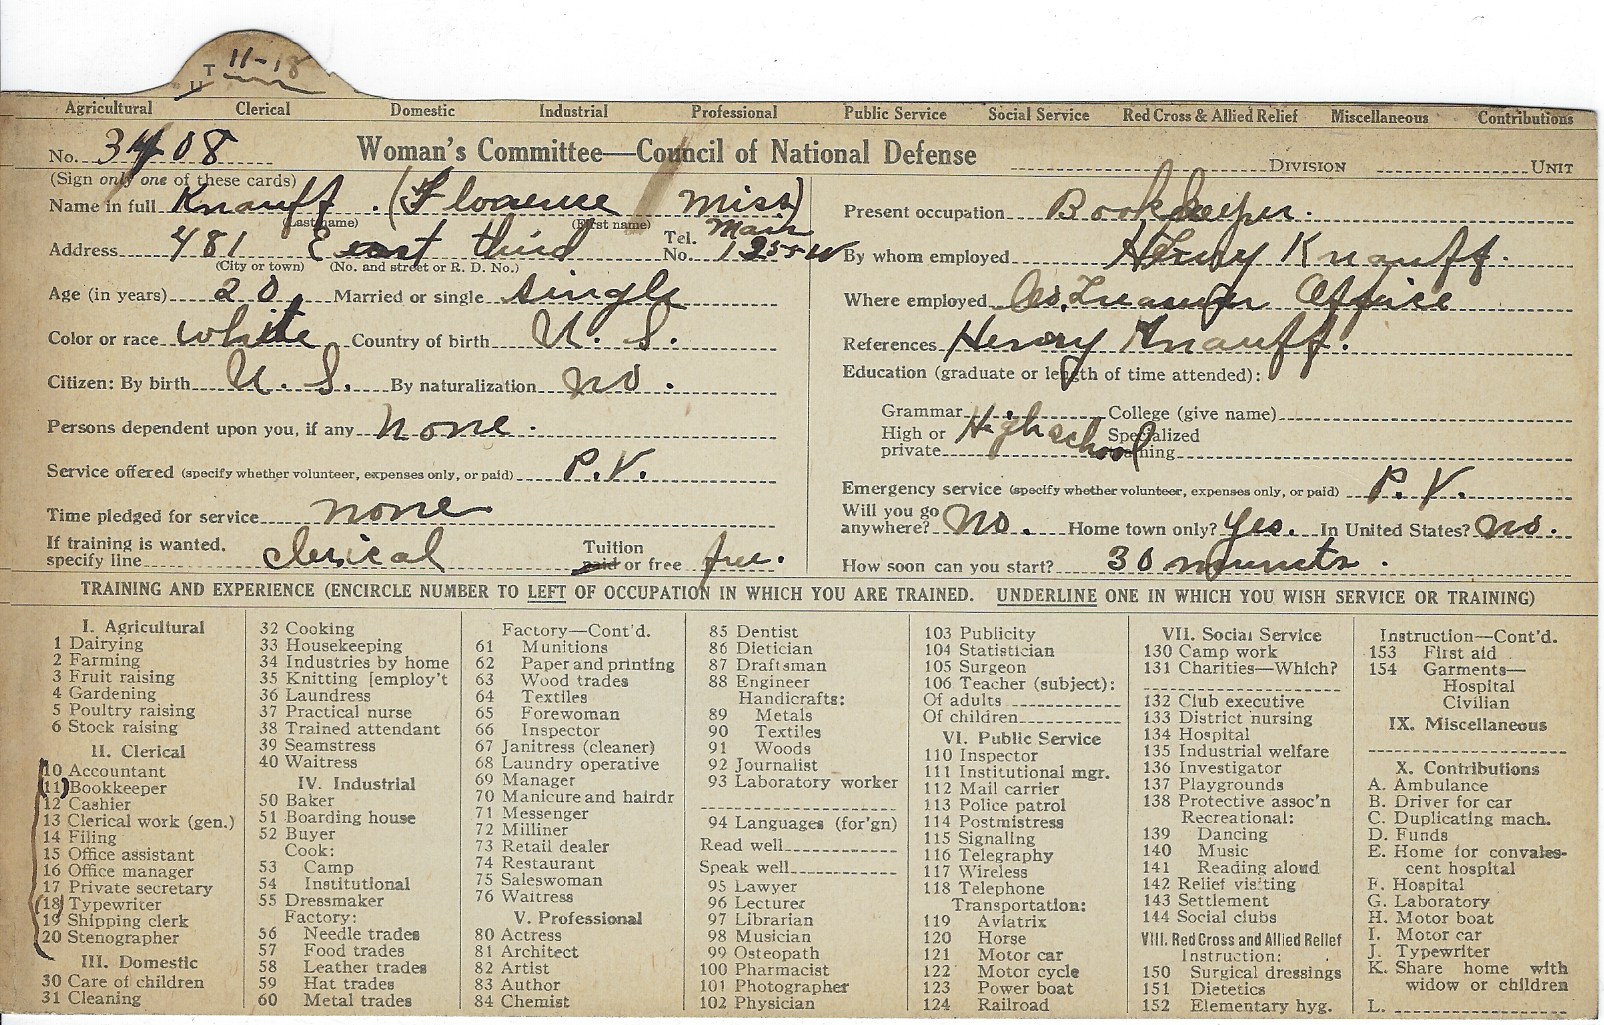 T 11-18
U
Agricultural Clerical Domestic Industrial Professional Public Service Social Service Red Cross & Allied Relief Miscellaneous Contributions
No. 3408 Woman's Committee—Council of National Defense DIVISION UNIT
(Sign only one of these cards)
Name in full Knauff. (Florence Miss)
(Last name) (First name)
Address 481 East third Tel. No. Main 1255-W
(City or town) (No. and street or R. D. No.)
Age (in years) 20 Married or single single
Color or race white Country of birth U. S.
Citizen: By birth U. S. By naturalization no.
Persons dependent upon you, if any none.
Service offered (specify whether volunteer, expenses only, or paid) P.V.
Time pledged for service none
If training is wanted, specify line clerical Tuition paid or free free.
Present occupation Bookkeeper.
By whom employed Henry Knauff.
Where employed Co. Treasurer Office
References Henry Knauff.
Education (graduate or length of time attended):
Grammar College (give name)
High or private High school Specialized training
Emergency service (specify whether volunteer, expenses only, or paid) P.V.
Will you go anywhere? No. Home town only? Yes. In United States? no.
How soon can you start? 30 minuets.
TRAINING AND EXPERIENCE (ENCIRCLE NUMBER TO LEFT OF OCCUPATION IN WHICH YOU ARE TRAINED. UNDERLINE ONE IN WHICH YOU WISH SERVICE OR TRAINING)
I. Agricultural
1 Dairying
2 Farming
3 Fruit raising
4 Gardening
5 Poultry raising
6 Stock raising
II. Clerical
10 Accountant
(11) Bookkeeper
12 Cashier
13 Clerical work (gen.)
14 Filing
15 Office assistant
16 Office manager
17 Private secretary
(18) Typewriter
19 Shipping clerk
20 Stenographer
III. Domestic
30 Care of children
31 Cleaning
32 Cooking
33 Housekeeping
34 Industries by home
35 Knitting [employ't
36 Laundress
37 Practical nurse
38 Trained attendant
39 Seamstress
40 Waitress
IV. Industrial
50 Baker
51 Boarding house
52 Buyer
Cook:
53 Camp
54 Institutional
55 Dressmaker
Factory:
56 Needle trades
57 Food trades
58 Leather trades
59 Hat trades
60 Metal trades
Factory—Cont'd.
61 Munitions
62 Paper and printing
63 Wood trades
64 Textiles
65 Forewoman
66 Inspector
67 Janitress (cleaner)
68 Laundry operative
69 Manager
70 Manicure and hairdr
71 Messenger
72 Milliner
73 Retail dealer
74 Restaurant
75 Saleswoman
76 Waitress
V. Professional
80 Actress
81 Architect
82 Artist
83 Author
84 Chemist
85 Dentist
86 Dietician
87 Draftsman
88 Engineer
Handicrafts:
89 Metals
90 Textiles
91 Woods
92 Journalist
93 Laboratory worker
94 Languages (for'gn)
Read well
Speak well
95 Lawyer
96 Lecturer
97 Librarian
98 Musician
99 Osteopath
100 Pharmacist
101 Photographer
102 Physician
103 Publicity
104 Statistician
105 Surgeon
106 Teacher (subject):
Of adults
Of children
VI. Public Service
110 Inspector
111 Institutional mgr.
112 Mail carrier
113 Police patrol
114 Postmistress
115 Signalling
116 Telegraphy
117 Wireless
118 Telephone
Transportation:
119 Aviatrix
120 Horse
121 Motor car
122 Motor cycle
123 Power boat
124 Railroad
VII. Social Service
130 Camp work
131 Charities—Which?
132 Club executive
133 District nursing
134 Hospital
135 Industrial welfare
136 Investigator
137 Playgrounds
138 Protective assoc'n
Recreational:
139 Dancing
140 Music
141 Reading aloud
142 Relief visiting
143 Settlement
144 Social clubs
VIII. Red Cross and Allied Relief
Instruction:
150 Surgical dressings
151 Dietetics
152 Elementary hyg.
Instruction—Cont'd.
153 First aid
154 Garments—
Hospital
Civilian
IX. Miscellaneous
X. Contributions
A. Ambulance
B. Driver for car
C. Duplicating mach.
D. Funds
E. Home for convales-
cent hospital
F. Hospital
G. Laboratory
H. Motor boat
I. Motor car
J. Typewriter
K. Share home with
widow or children
L.